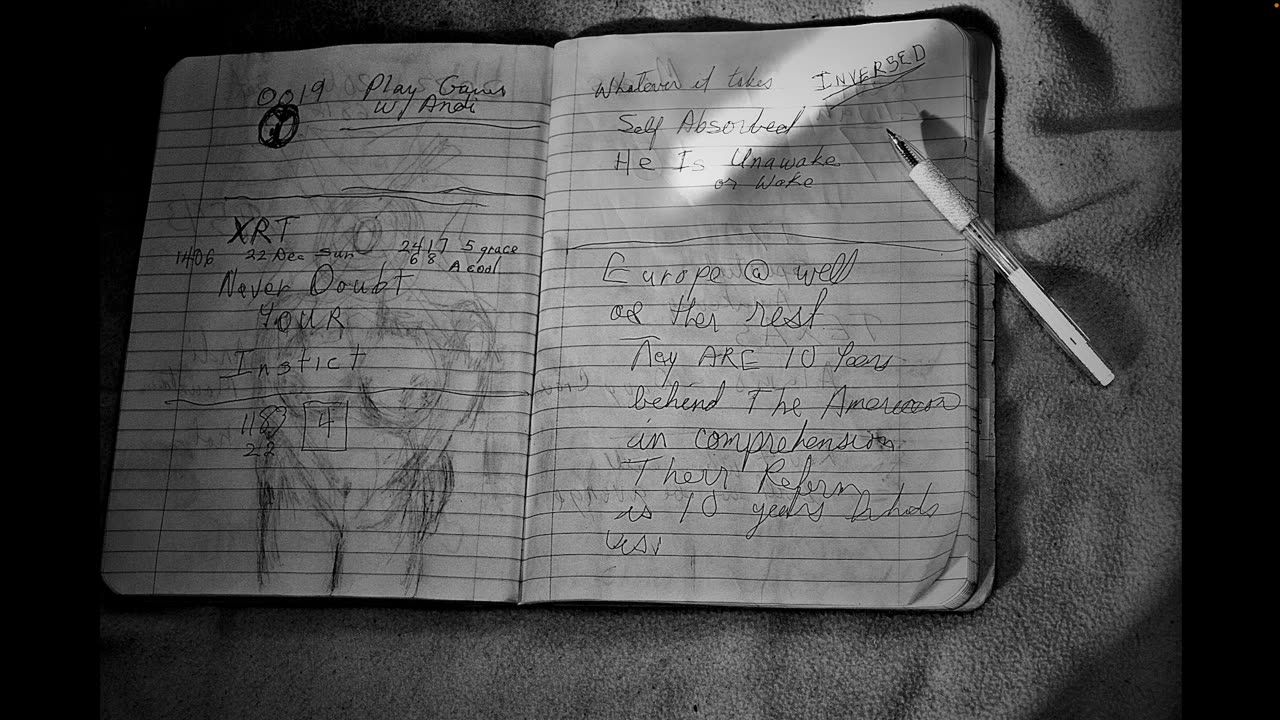 0019 Play Games
w/ Andi
XRT
1406 22 Dec Sun 2417 5 grace
68 A cool
Never Doubt
YOUR
Instict
1183 4
22
Whatever it takes INVERSED
Self Absorbed
He Is Unawake
or Wake
Europe @ well
as ther rest
They ARE 10 Years
behind The American
in comprehension
Their Reform
is 10 years